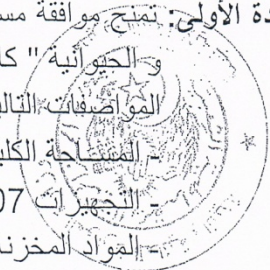 دة الأولى: تمنح موافقة مس
و الحيوانية " كا
المواصفات التالي
- المساحة الكلي
- التجهيزات 07
- المواد المخزن